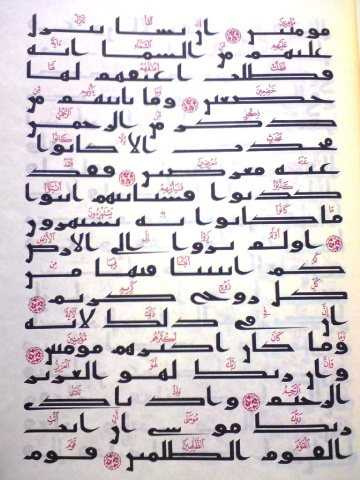 مومنين ۝ ان نشا ننزل
عليهم من السما ايه
فظلت اعنقهم لها
خضعين ۝ وما ياتيهم من
ذكر من الرحمن
محدث الا كانوا
عنه معرضين ۝ فقد
كذبوا فسياتيهم انبوا
ما كانوا به يستهزون
۝ اولم يروا الى الارض
كم انبتنا فيها من
كل زوج كريم ۝
ان في ذلك لايه
وما كان اكثرهم مومنين ۝
وان ربك لهو العزيز
الرحيم ۝ واذ نادى
ربك موسى ان ايت
القوم الظلمين ۝ قوم